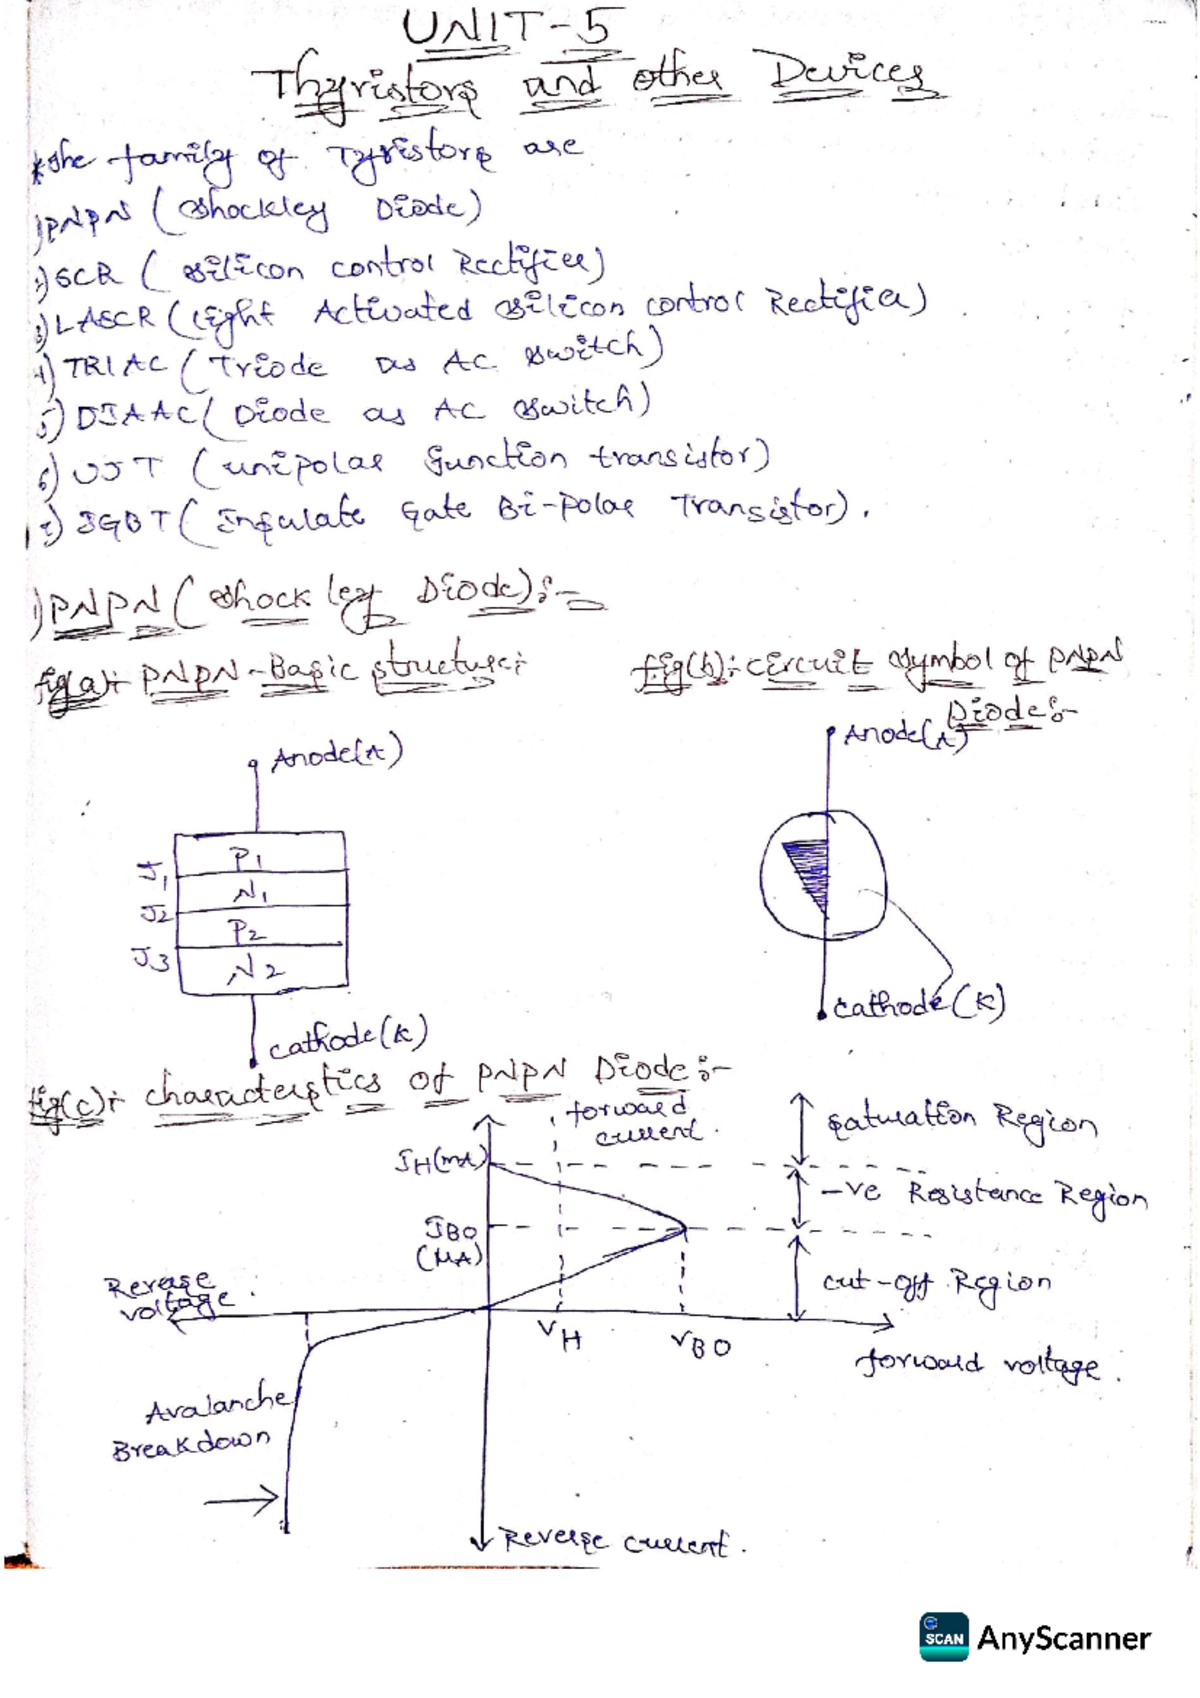 UNIT-5
Thyristors and other Devices
*The family of Tyristors are
1) PNPN (Shockley Diode)
2) SCR (Silicon control Rectifier)
3) LASCR (Light Activated Silicon control Rectifier)
4) TRIAC (Triode as AC Switch)
5) DIAAC (Diode as AC Switch)
6) UJT (unipolar Junction transistor)
7) IGBT (Insulate Gate Bi-polar Transistor).
1) PNPN (Shockley Diode):-
fig(a):- PNPN-Basic structure:-
fig(b):- circuit symbol of PNPN
Diode:-
Anode(A)
P1
J1
N1
J2
P2
J3
N2
cathode(K)
Anode(A)
cathode(K)
fig(c):- characteristics of PNPN Diode:-
forward
current.
IH(mA)
IBO
(MA)
Saturation Region
-ve Resistance Region
cut-off Region
Reverse
voltage.
VH
VBO
forward voltage.
Avalanche
Breakdown
Reverse current.
SCAN AnyScanner